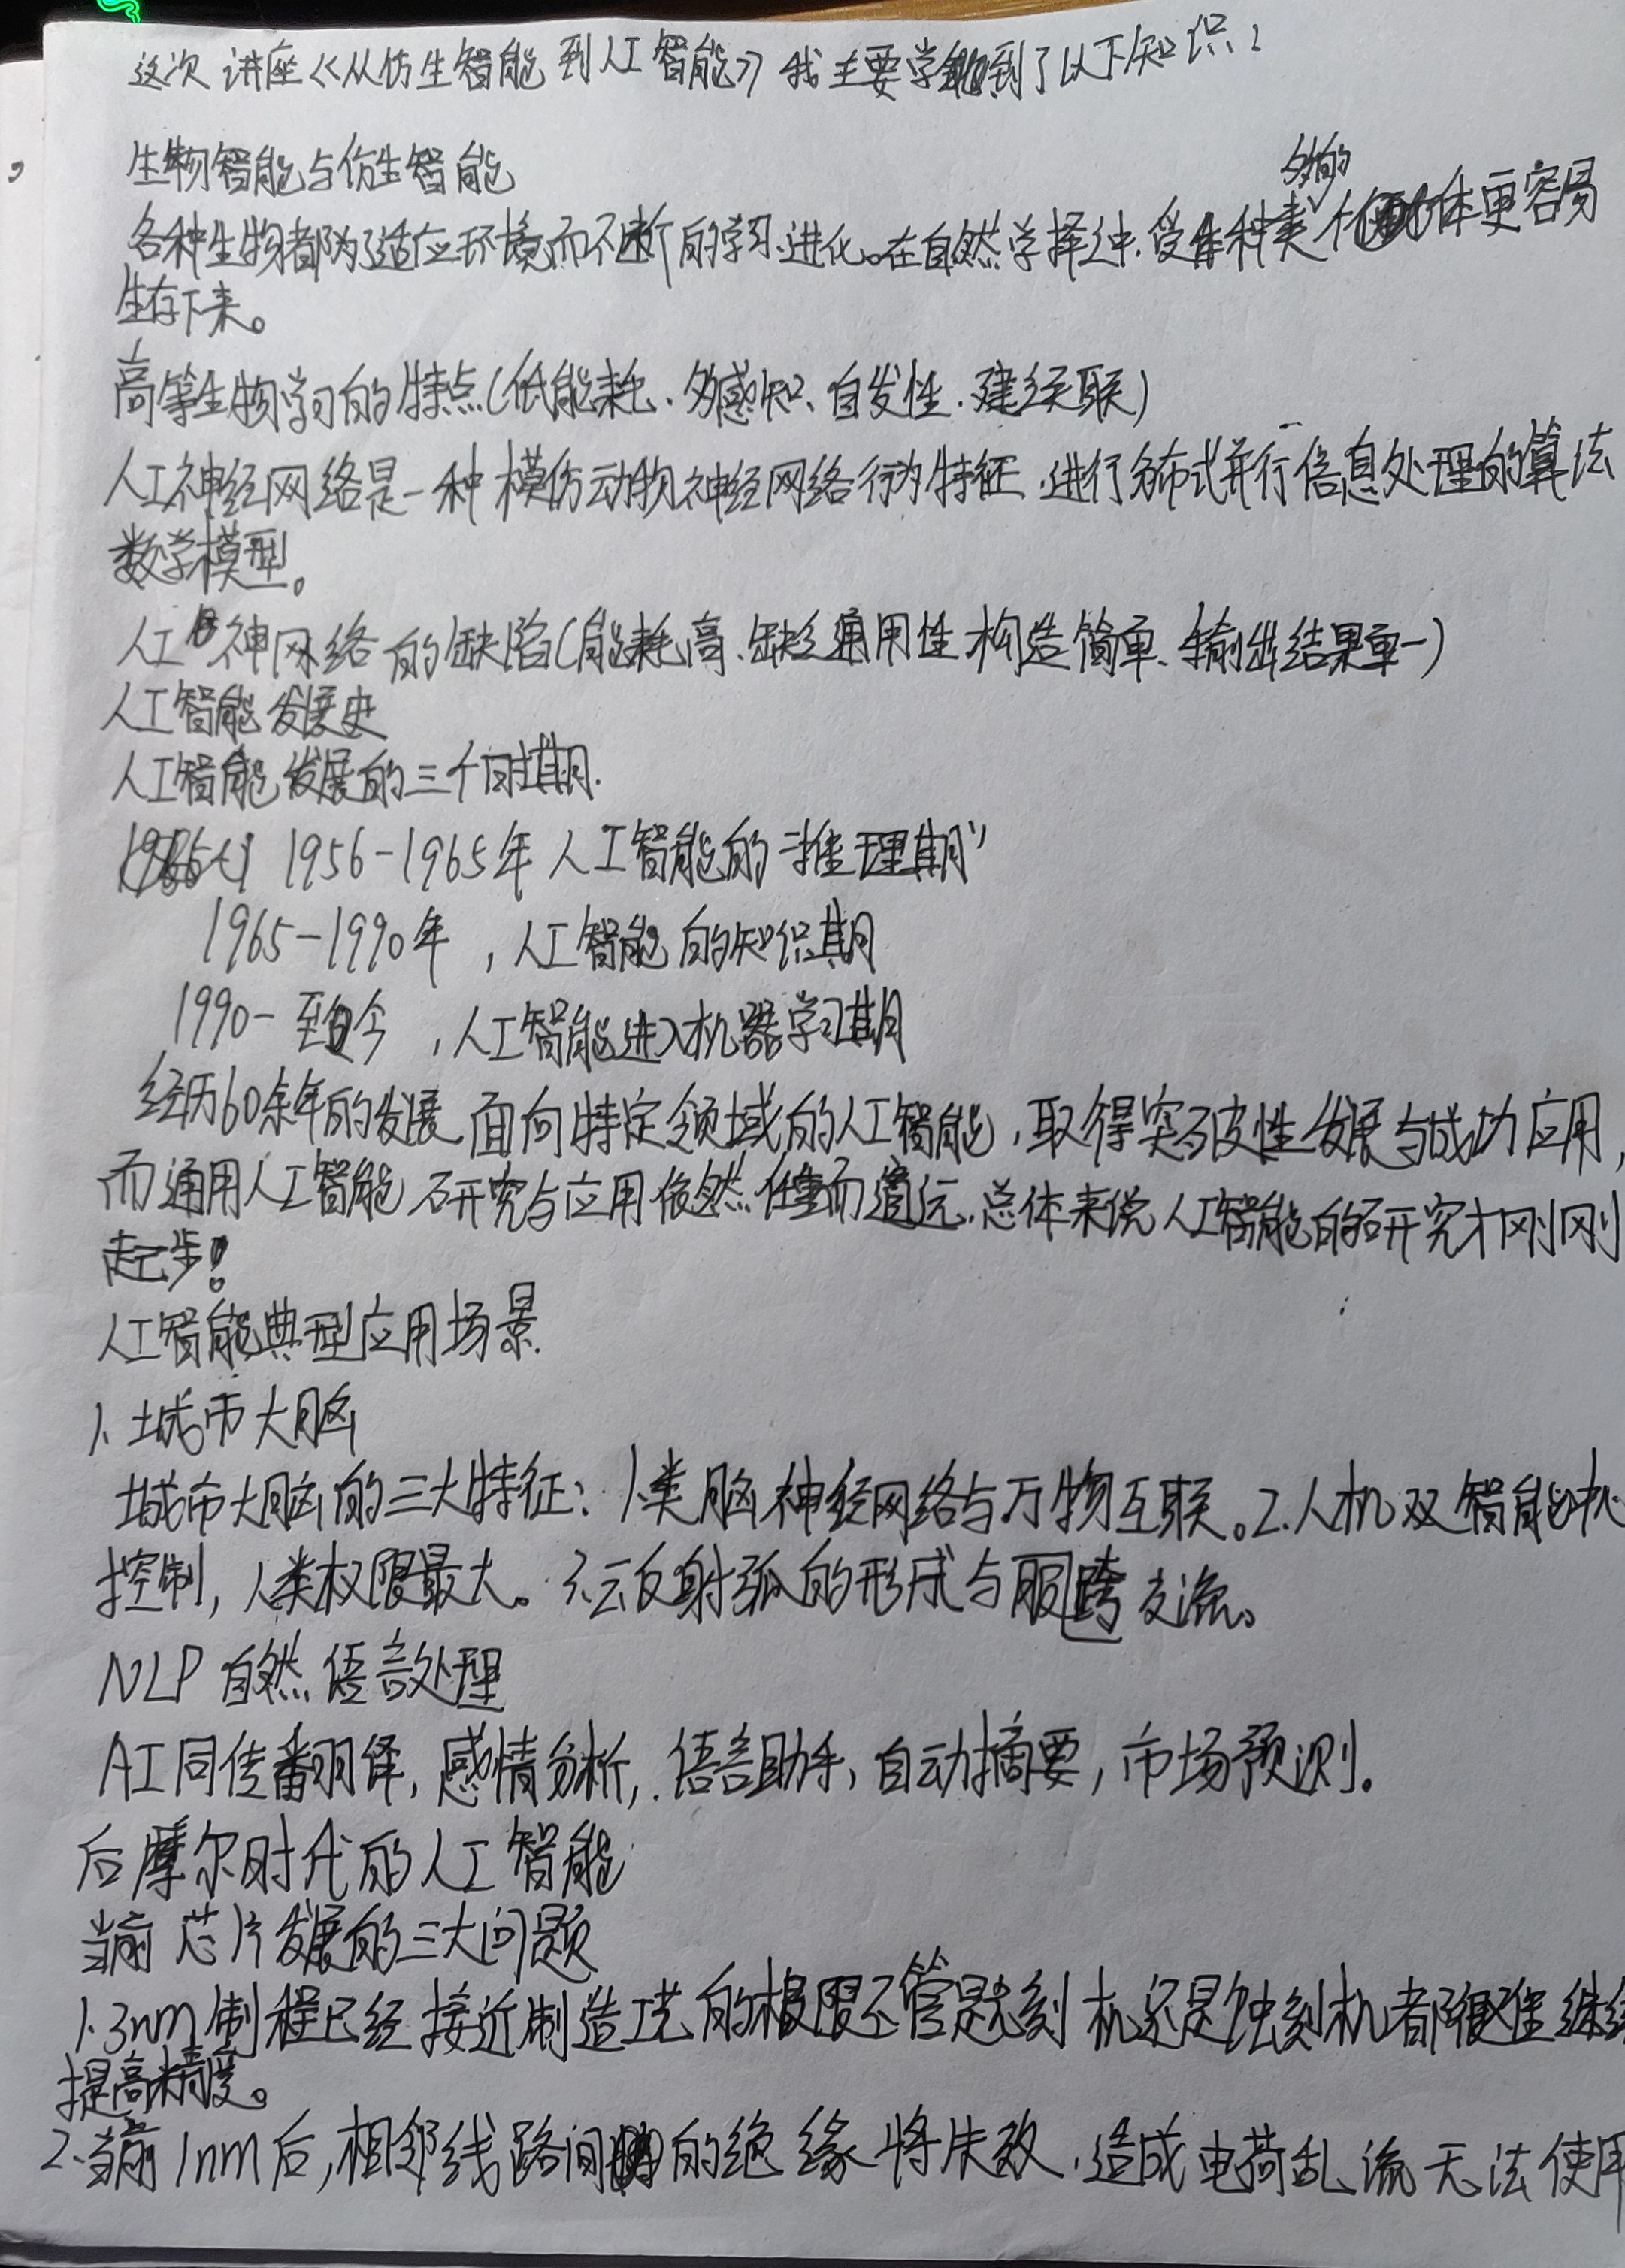 这次讲座《从仿生智能到人工智能》我主要学到了以下知识：
生物智能与仿生智能
各种生物都为了适应环境而不断的学习、进化。在自然学择之中、受種类多的个体更容易
生存下来。
高等生物学习的特点(低能耗、多感知、自发性、建立关联)
人工神经网络是一种模仿动物神经网络行为特征、进行分布式并行信息处理的算法
数学模型。
人工神网络的缺陷(能耗高、缺乏通用性、构造简单、输出结果单一)
人工智能发展史
人工智能发展的三个时期.
1956-1965年 人工智能的“推理期”
1965-1990年 ，人工智能的知识期
1990-至今 ，人工智能进入机器学习期
经历60余年的发展、面向特定领域的人工智能，取得突破性发展与成功应用，
而通用人工智能研究与应用依然任重而道远、总体来说人工智能的研究才刚刚
起步！
人工智能典型应用场景.
1、城市大脑
城市大脑的三大特征：1.类脑神经网络与万物互联。2.人机双智能
控制，人类权限最大。3.云反射弧的形成与跨交流。
NLP 自然语言处理
AI同传翻译，感情分析，语言助手，自动摘要，市场预测。
后摩尔时代的人工智能
当前芯片发展的三大问题
1.3nm制程已经接近制造工艺的极限不管是光刻机还是蚀刻机都很难继续
提高精度。
2.当前1nm后，相邻线路间的绝缘将失效、造成电荷乱流无法使用